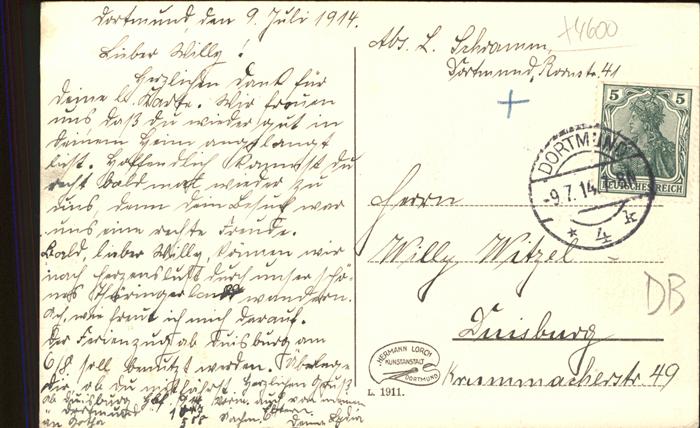 Dortmund, den 9. Juli 1914.
Lieber Willy!
Herzlichen Dank für
deine lb. Karte. Wir freuen
uns, daß du wieder gut in
deinem Heim angelangt
bist. Hoffentlich kommst du
recht bald mal wieder zu
uns, denn dein Besuch war
uns eine rechte Freude.
Bald, lieber Willy, können wir
nach Herzenslust durch unser schö-
nes Thüringerland wandern.
Ach, wie freut ich mich darauf.
Der Ferienzug ab Duisburg am
6/8. soll benutzt werden. Überlege
dir, ob du mitfährst. Herzlichen Gruß
ab Duisburg vorm. auch von meinen
" Dortmund Eltern.
an Gotha Deine Lydia
Abs. L. Schramm,
Dortmund, Kornstr. 41
+4600
5 5
DEUTSCHES REICH
DORTMUND
-9.7.14
* 4 k
Herrn
Willy Witzel
Duisburg
Krummacherstr. 49
DB
HERMANN LORCH
KUNSTANSTALT
DORTMUND
L. 1911.